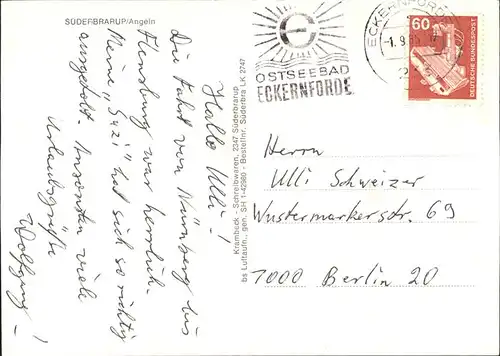 SÜDERBRARUP/Angeln
Hallo Ulli!
Die Fahrt von Nürnberg bis
Flensburg war herrlich.
Meine „Suzi" hat sich so richtig
ausgetobt. Ansonsten viele
Urlaubsgrüße
Wolfgang!
Krambeck - Schreibwaren, 2347 Süderbrarup
bs Luftaufn., gen. SH 1-42980 - Bestellnr. Süderbra LK 2747
OSTSEEBAD
ECKERNFÖRDE
ECKERNFÖRDE
-1.9.80
60
DEUTSCHE BUNDESPOST
Herrn
Ulli Schweizer
Wustermarkerstr. 69
1000 Berlin 20